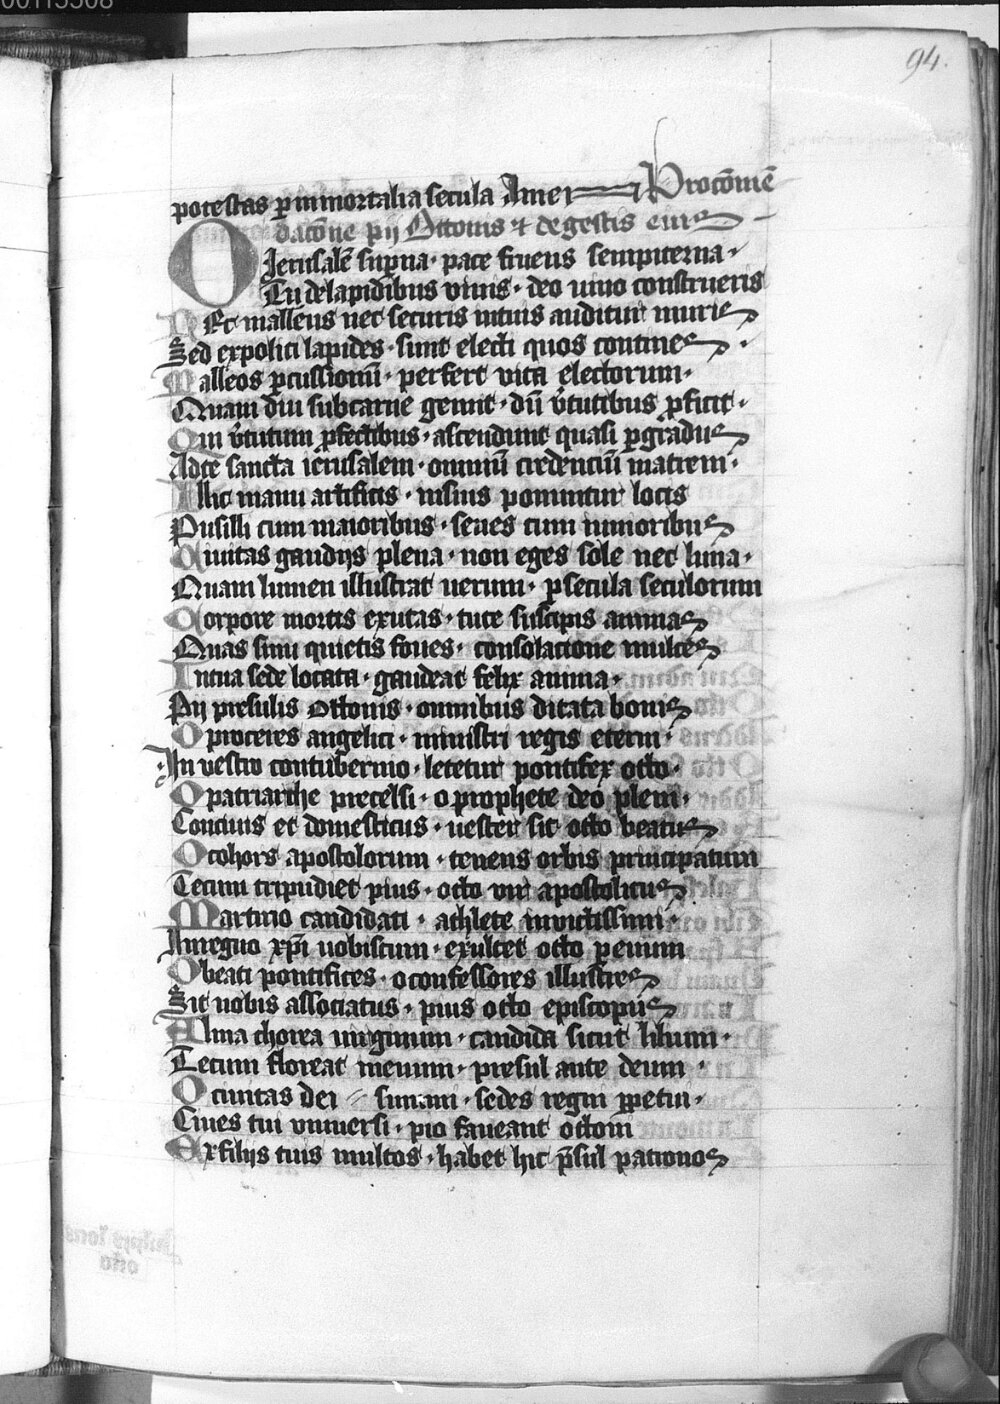 00115508
94.
potestas p̲ inmortalia secula Amen Procōmē
dacōne pij Ottonis ⁊ de gestis eius
O Jerusalē sup̲na · pace fruens sempiterna ·
Tu de lapidibus viuis · deo uiuo construeris
Nec malleus nec securis intuis auditur muris
Sed expoliti lapides · sunt electi quos contines ·
Malleos p̲cussionū · perfert vita electorum ·
Quam diu sub carne gemit · dū v̓tutibus ꝓficit ·
Qui v̓tutum ꝓfectibus · ascendunt quasi p̲ gradus
Ad te sancta ierusalem · omniū credenciū matrem ·
Illic manu artificis · nisius ponuntur locis
Pusilli cum maioribus · senes cum iunioribus
Ciuitas gaudijs plena · non eges sole nec luna ·
Quam lumen illustrat uerum · p̲ secula seculorum
Corpore mortis exutas · tute suscipis animas
Quas sinu quietis foues · consolacione mulces
In tua sede locata · gaudeat felix anima ·
Pij presulis ottonis · omnibus ditata bonis
O proceres angelici · ministri regis eterni ·
In vestro contubernio · letetur pontifex otto ·
O patriarche precelsi · o prophete deo pleni ·
Conciuis et domesticus · uester sit otto beatus
O cohors apostolorum · tenens orbis principatum
Tecum tripudiet pius · otto vir apostolicus
Martirio candidati · athlete inuictissimi ·
In regno xp̄i uobiscum · exultet otto perenni
O beati pontifices · o confessores illustres
Sit uobis associatus · pius otto episcopus
Alma chorea uirginum · candida sicut lilium ·
Tecum floreat · presul ante deum ·
O ciuitas dei · sedes regni p̲petui ·
Ciues tui vniuersi · pio faueant ottoni
Ex filijs tuis multos · habet hic p̄sul patronos
otto